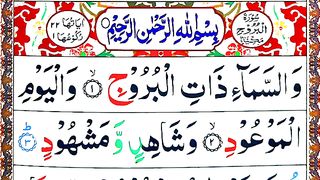 سُوْرَةُ الْبُرُوْجِ
بِسْمِ اللهِ الرَّحْمٰنِ الرَّحِيْمِ
اٰيَاتُهَا ٢٢
رُكُوْعُهَا ١
وَالسَّمَآءِ ذَاتِ الْبُرُوْجِ ١ وَالْيَوْمِ
الْمَوْعُوْدِ ٢ وَشَاهِدٍ وَّ مَشْهُوْدٍ ٣